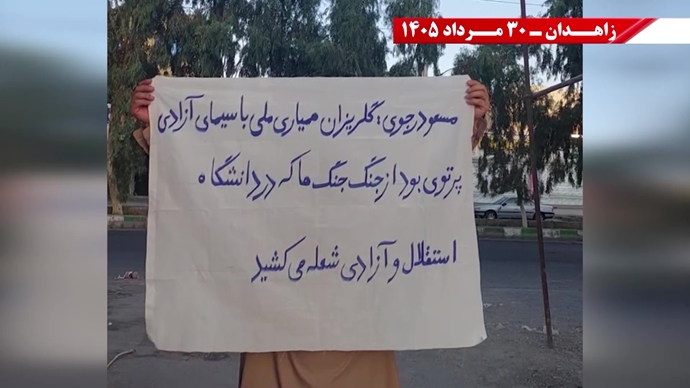 زاهدان - ۳۰ مرداد ۱۴۰۵
مسعود رجوی: گلریزان همیاری ملی با سیمای آزادی
پرتوی بود از جنگ جنگ ما که در دانشگاه
استقلال و آزادی شعله می کشید